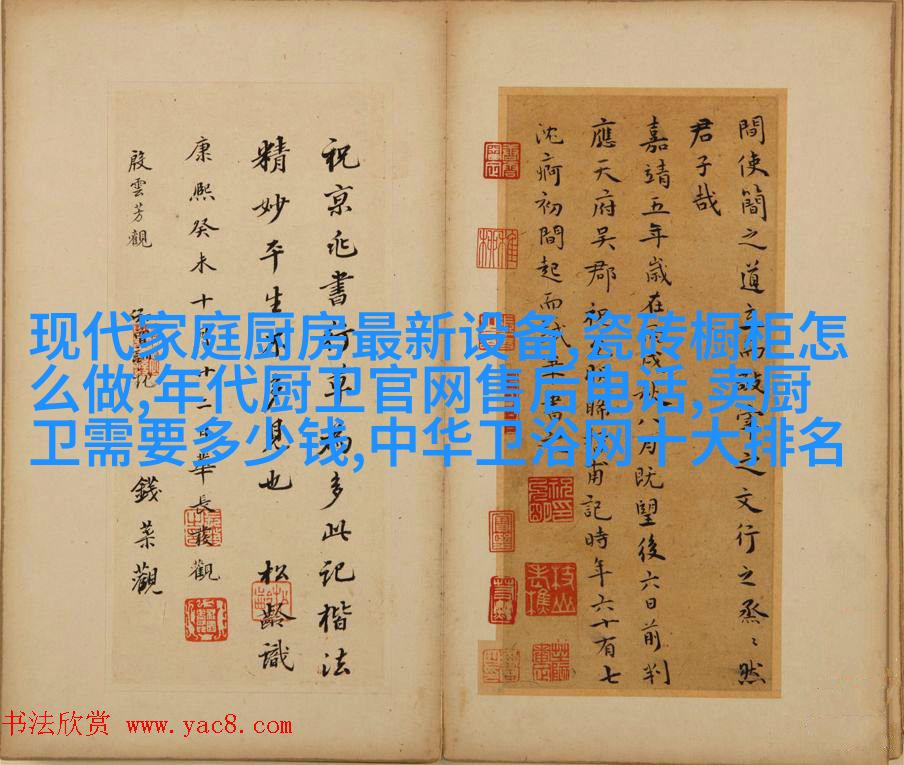 間使簡之道立而敬之文行之烝〻然
君子哉
嘉靖五年歲在丙戌秋八月既望後六日前判
應天府吳郡祝甫記時年六十有七
沈痾初間起而
祝京兆書行草爲多此記楷法
精妙平生不多見也 松齡識
康熙癸未十月十二日華長發觀
殷雲芳觀
錢棻觀
现代家庭厨房最新设备,瓷砖橱柜怎
么做,年代厨卫官网售后电话,卖厨
卫需要多少钱,中华卫浴网十大排名
书法欣赏 www.yac8.com